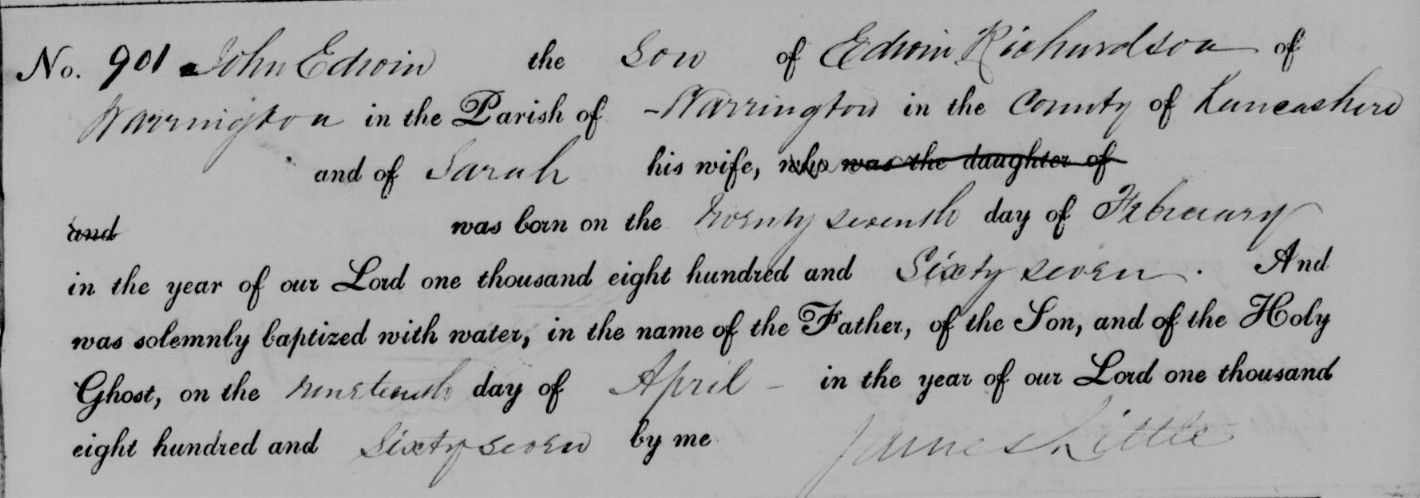 No. 901 John Edwin the Son of Edwin Richardson of
Warrington in the Parish of Warrington in the County of Lancashire
and of Sarah his wife, who was the daughter of
and was born on the twenty seventh day of February
in the year of our Lord one thousand eight hundred and Sixty seven. And
was solemnly baptized with water, in the name of the Father, of the Son, and of the Holy
Ghost, on the nineteenth day of April - in the year of our Lord one thousand
eight hundred and Sixty seven by me James Little